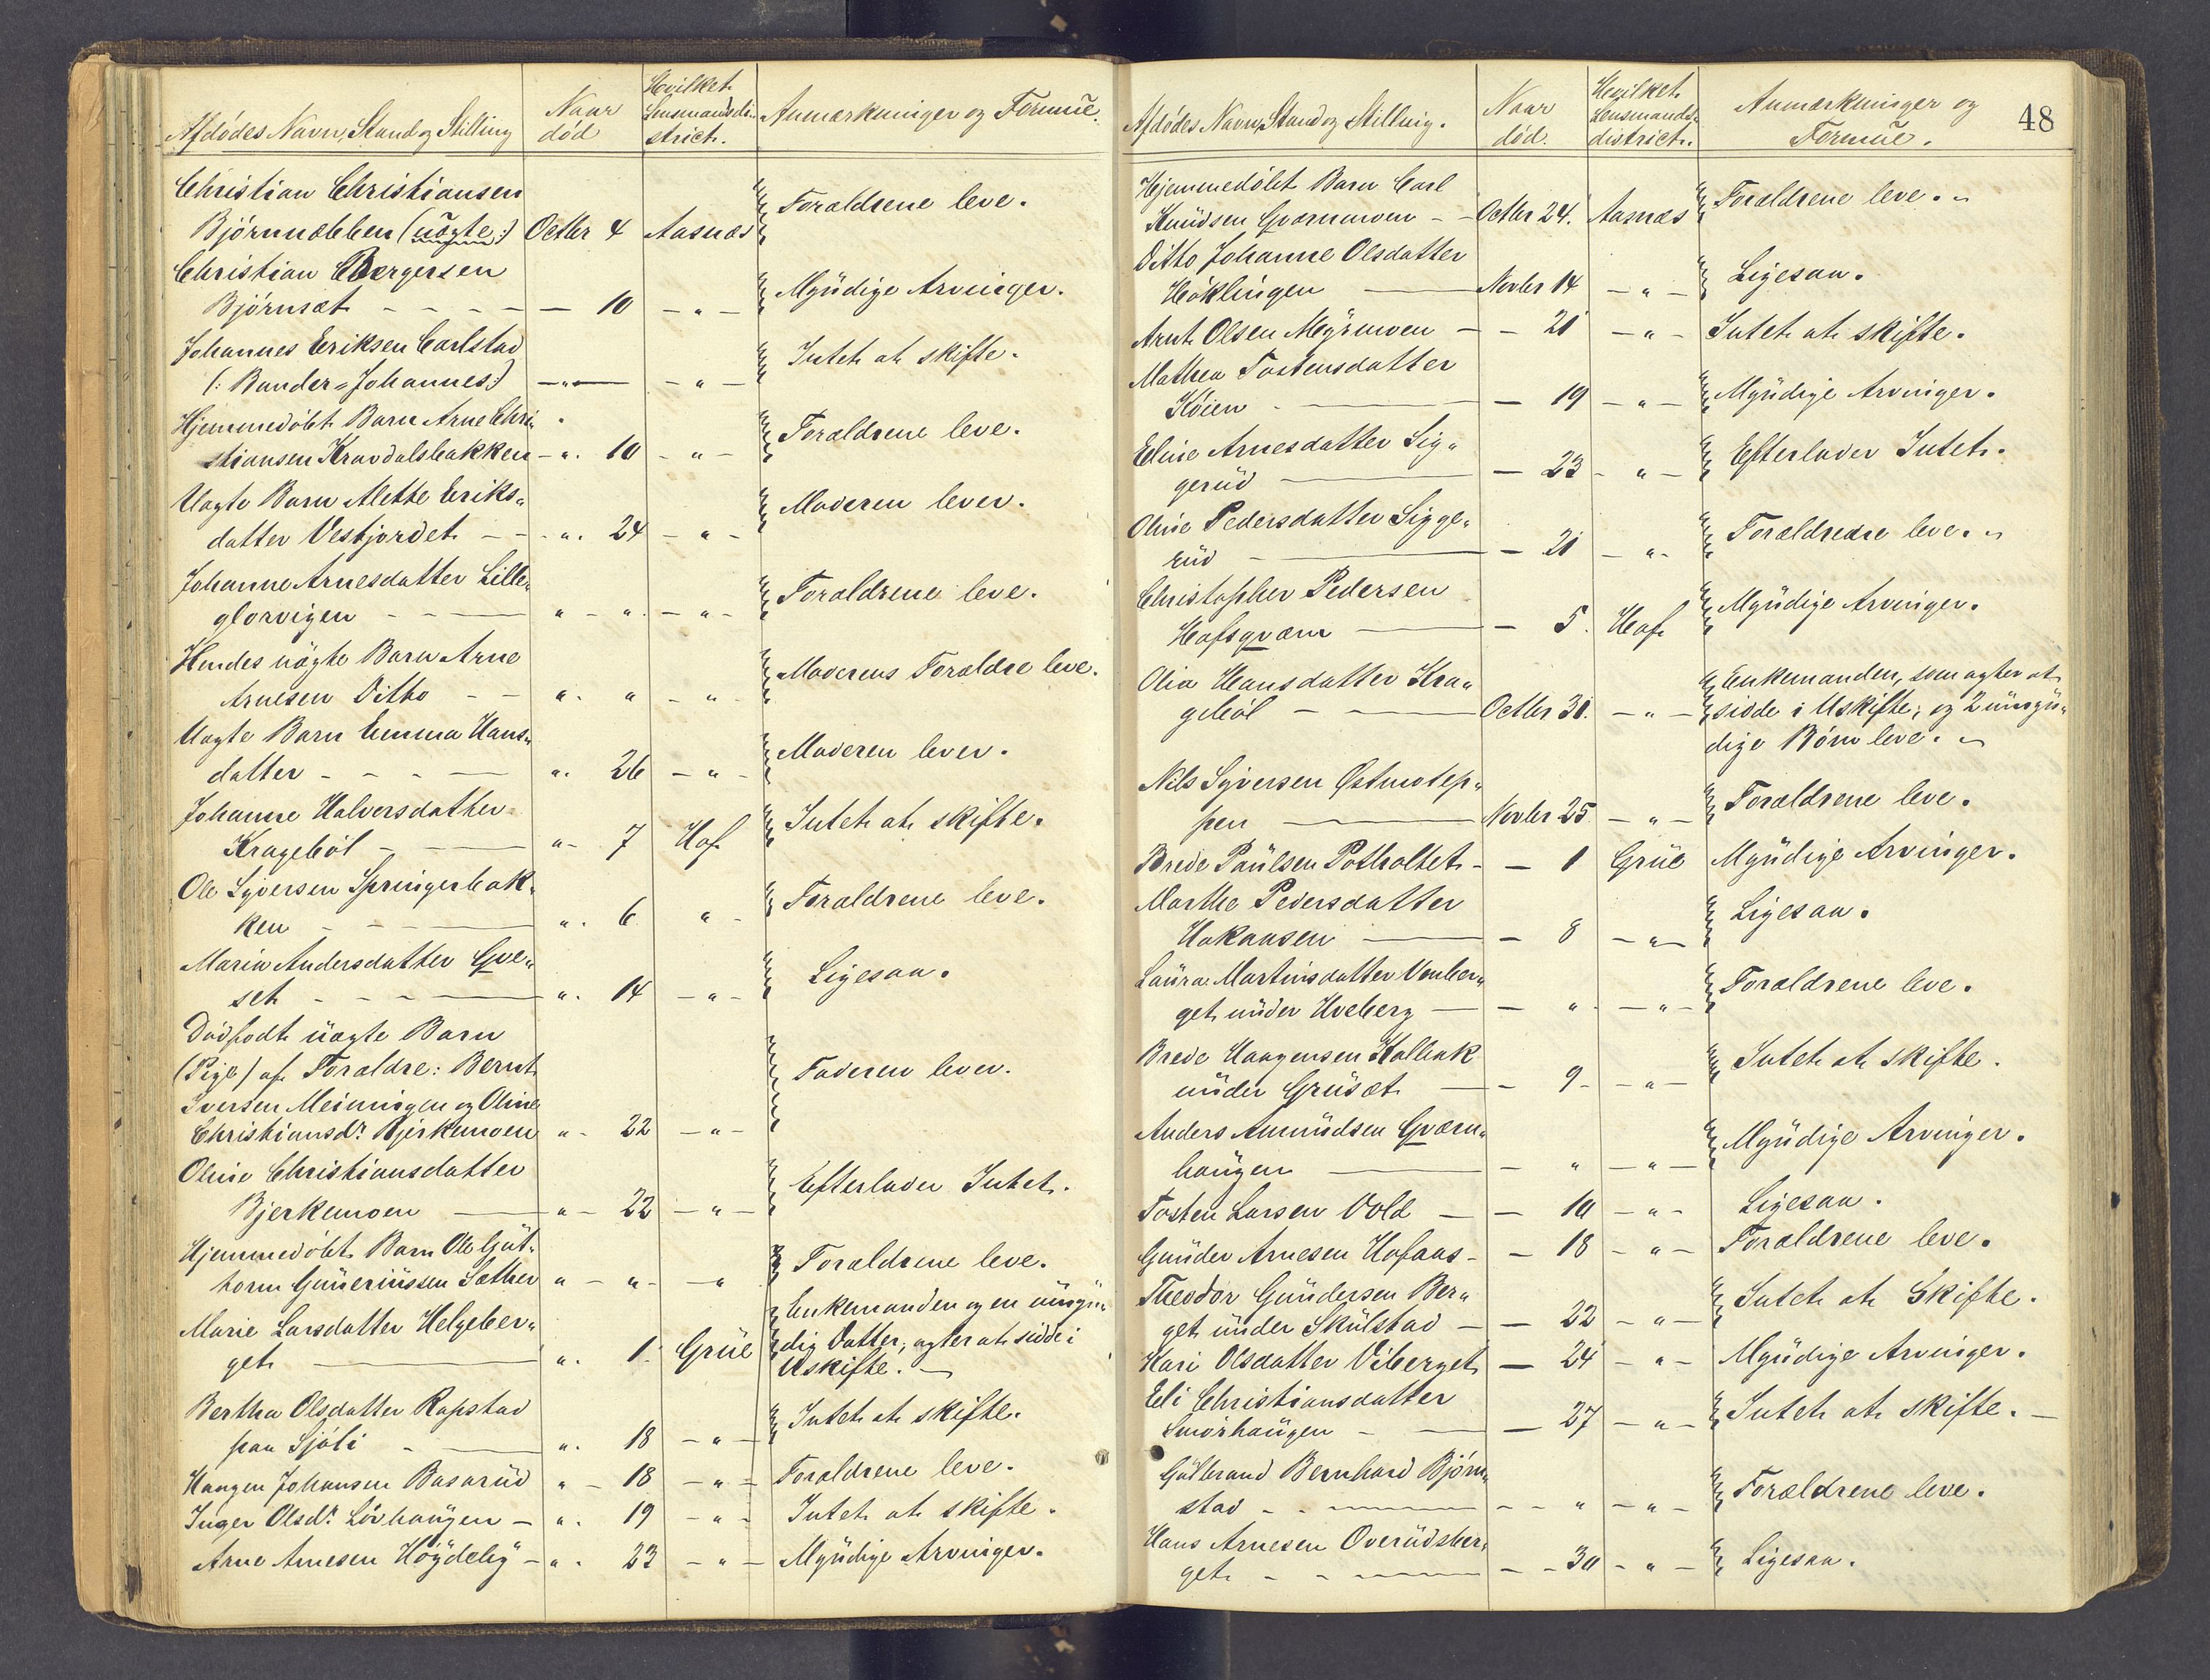 Afdødes Navn, Stand og Stilling
Naar død
Hvilket Lensmandsdi-strict.
Anmærkninger og Formue.
Christian Christiansen
Björnnæbben (uægte:) Octbr 4 Aasnæs Forældrene leve.
Christian Bergersen
Björnsæt - - - - — 10 — " — Myndige Arvinger.
Johannes Eriksen Carlstad
(: Bander-Johannes:) — " — — " — Intet at skifte.
Hjemmedöbt Barn Arne Chri-
stiansen Kravdalsbakken — ". 10 — " — Forældrene leve.
Uægte Barn Alette Eriks-
datter Vestjordet — — ". 24 — " — Moderen lever.
Johanne Arnesdatter Lille-
glorvigen - - — " — ". — " — Forældrene leve.
Hendes uægte Barn Arne
Arnesen Ditto - - ". " — " Moderens Forældre leve.
Uægte Barn Emma Hans-
datter - - - — ". 26 — " — Moderen lever.
Johanne Halversdatter
Krageböl - — " - 7 Hof Intet at skifte.
Ole Syversen Springerbak-
ken - - — ". 6 " - Forældrene leve.
Maria Andersdatter Gve-
set - - - — ". 14 — " - Ligesaa.
Dödfödt uægte Barn
(Pige) af Forældre: Bernt
Iversen Meiningen og Oline
Christiansdr. Bjerkemoen " - 22 — " — Faderen lever.
Oline Christiansdatter
Bjerkemoen — " - 22 — " — Efterlader Intet.
Hjemmedöbt Barn Ole Gut-
horm Guneriussen Sæther " — " - — " Forældrene leve.
Marie Larsdatter Helgeber-
get — ". 1. Grue Enkemanden og en umyn-
dig Datter; agter at sidde i
Uskifte. —
Bertha Olsdatter Rapstad
paa Sjöli - — ". 18 — " — Intet at skifte.
Haagen Johansen Basarud " — 18 — " — Forældrene leve.
Inger Olsdr. Lövhaugen — ". 19 — " - Intet at skifte.
Arne Arnesen Höydeby — ". 23 — " — Myndige Arvinger.
48
Afdödes Navn, Stand og Stilling.
Naar död.
Hvilket Lensmands-district.
Anmærkninger og Formue.
Hjemmedöbt Barn Carl
Knudsen Gværnmoen - — Octbr 24. Aasnæs Forældrene leve.
Ditto Johanne Olsdatter
Höklingen — Novbr 14 — " — Ligesaa.
Arnt Olsen Myrmoen — — 21 — " — Intet at skifte.
Mathea Tostensdatter
Köien - — — 19 — " — Myndige Arvinger.
Eline Arnesdatter Sig-
gerud — — 23 - " — Efterlader Intet.
Oline Pedersdatter Sigge-
rud — — 21 — " - Forældrene leve.
Christopher Pedersen
Hofsgværn — — 5. Hof Myndige Arvinger.
Olia Hansdatter Kra-
geböl - — Octbr 31. — " — Enkemanden, som agter at
sidde i Uskifte; og 2 umyn-
dige Börn leve.
Nils Syversen Østmotep-
pen — Novbr 25 — " — Forældrene leve.
Brede Paulsen Potholtet - — 1 Grue Myndige Arvinger.
Marthe Pedersdatter
Hakaasen — — 8 — " — Ligesaa.
Laura Martinsdatter Vonber-
get under Hveberg — — ". — " — Forældrene leve.
Brede Haagensen Kolbak
under Grusæt — — 9 - — " — Intet at skifte.
Anders Amundsen Gværn-
haugen — — " — " — Myndige Arvinger.
Tosten Larsen Vold — — 10 — " - Ligesaa.
Gunder Arnesen Hofaas - — 18 — " — Forældrene leve.
Theodor Gundersen Ber-
get under Skulstad — — 22 — " — Intet at Skifte.
Kari Olsdatter Viberget — 24 — " — Myndige Arvinger.
Eli Christiansdatter
Smörhaugen - — — 27 — " — Intet at skifte. —
Gulbrand Bernhard Björn-
stad - - — - - " — " - Forældrene leve.
Hans Arnesen Overudsber-
get - - — - - 30 - " — Ligesaa.